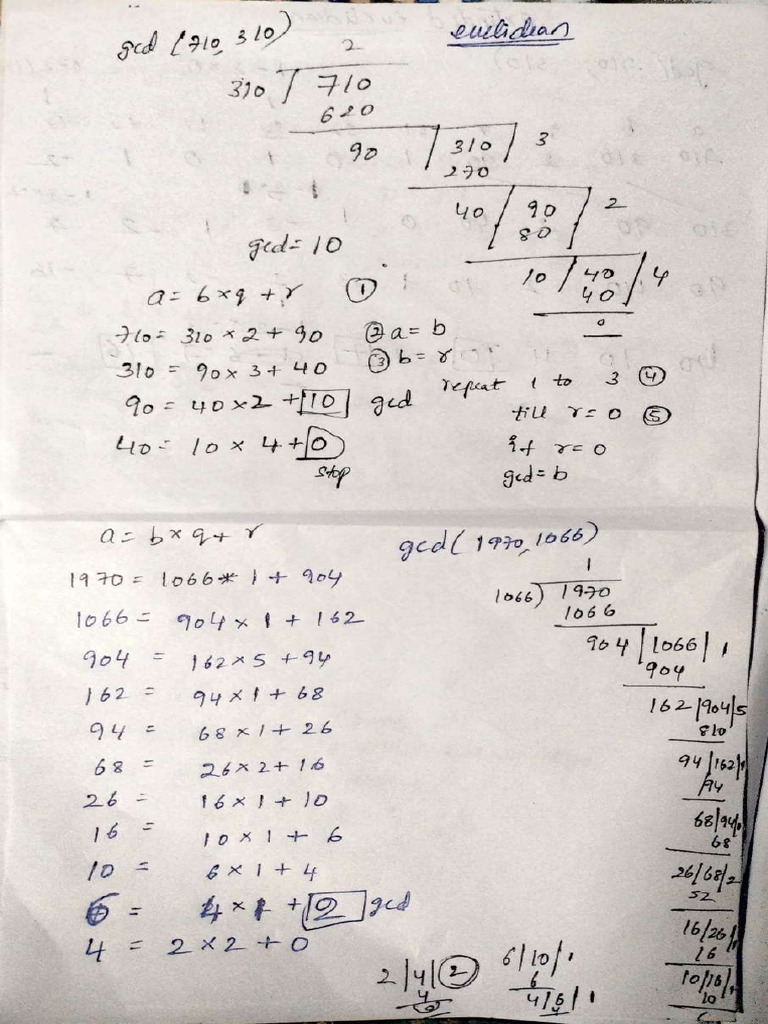 gcd (710, 310)
euclidean
2
310 710
620
90 310 3
270
40 90 2
80
10 40 4
40
0
gcd = 10
a = b x q + r ①
710 = 310 x 2 + 90 ② a = b
310 = 90 x 3 + 40 ③ b = r
90 = 40 x 2 + 10 gcd
repeat 1 to 3 ④
till r = 0 ⑤
40 = 10 x 4 + 0
stop
if r = 0
gcd = b
a = b x q + r
gcd ( 1970, 1066)
1970 = 1066 * 1 + 904
1066 = 904 x 1 + 162
904 = 162 x 5 + 94
162 = 94 x 1 + 68
94 = 68 x 1 + 26
68 = 26 x 2 + 16
26 = 16 x 1 + 10
16 = 10 x 1 + 6
10 = 6 x 1 + 4
6 = 4 x 1 + 2 gcd
4 = 2 x 2 + 0
1
1066 ) 1970
1066
904 1066 1
904
162 904 5
810
94 162 1
94
68 94 1
68
26 68 2
52
16 26 1
16
10 16 1
10
6 10 1
6
4 6 1
4
2 4 2
4
0